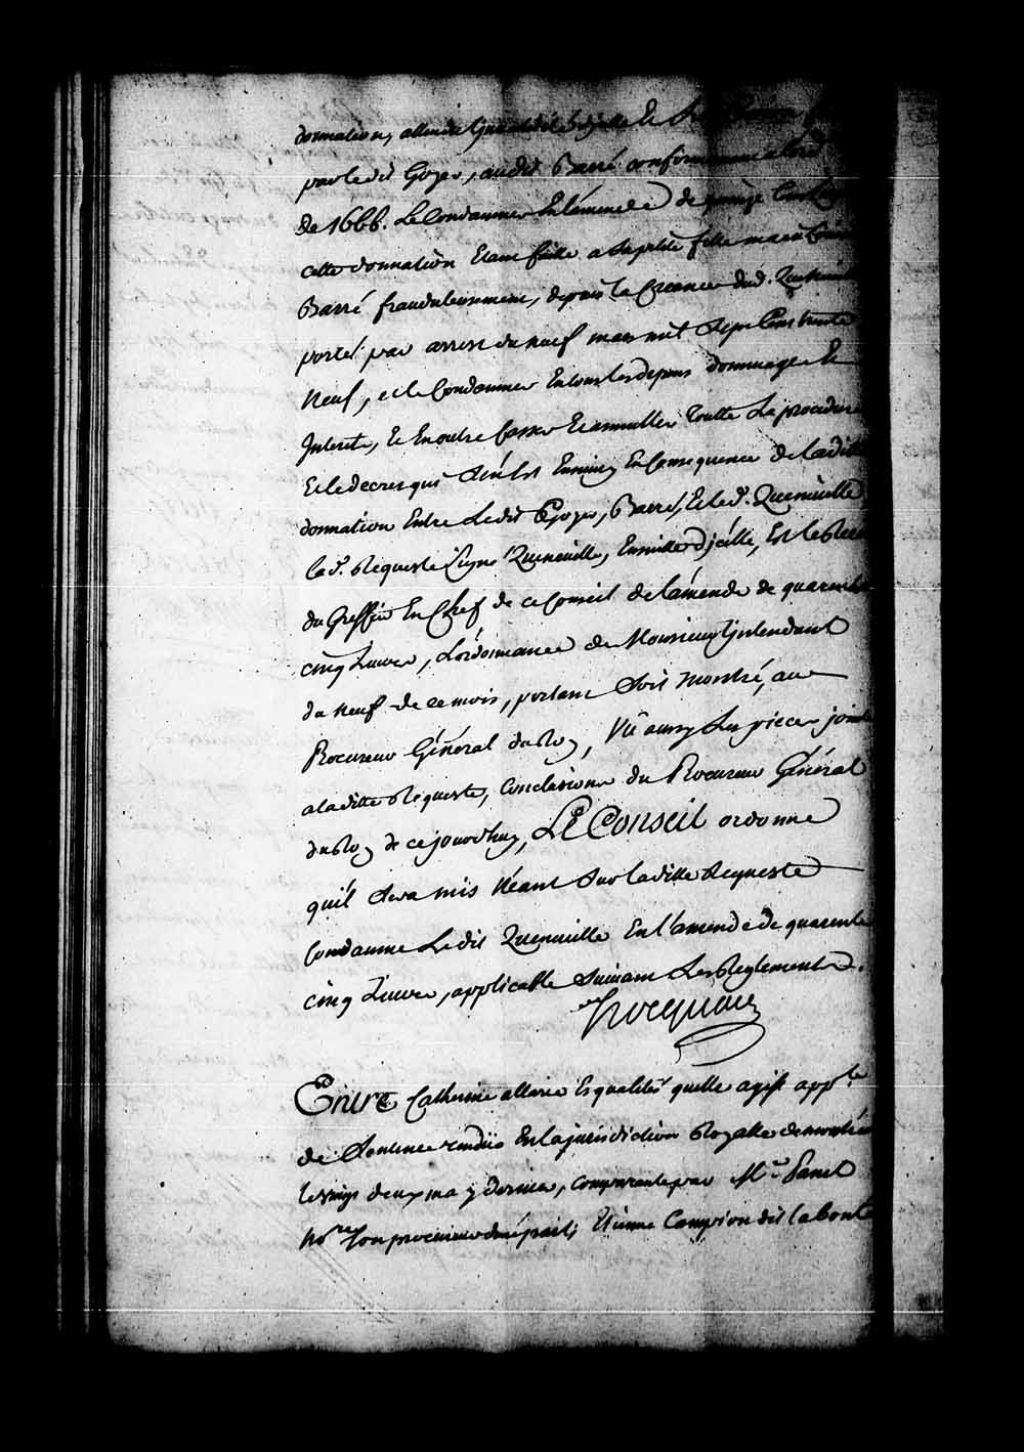 donnation, attendu
par ledit Goyer, audit Barré conformement a lord
de 1666. Le Condamner En lamende de
cette donnation Etant faitte a sa petite fille
Barré frauduleusement, depuis la Creance dud. Queneuille
portée par arrest du neuf mars mil Sept Cens trente
Neuf, et le Condamner En tous les depens dommages Et
Interets, Et En outre Casser Et annuller Toutte La procedure
Et le decret qui S'en Est Ensuivy En Consequence de Laditte
donnation Entre Ledit Goyer, Barré, Et led. Queneuille
lad. Requeste Signé Queneuille, Ensuitte d'jcelle, Est le Receu
du Greffier En Chef de ce Conseil de l'amende de quarente
cinq Livres, L'ordonnance de Monsieur l'jntendant
du neuf de ce mois, portant Soit Montré, au
Procureur Général du Roy, Vû aussy Les pieces jointes
a laditte Requeste, Conclusions du Procureur Général
du Roy de ce jourd'huy, LE Conseil ordonne
qu'il Sera mis Néant Sur laditte Requeste
Condamne Ledit Queneuille En l'amende de quarente
cinq Livres, applicable Suivant Les Reglements.
Hocquart
Entre Catherine allarie Es qualités quelle agist appte
de Sentence rendüe En la jurisdiction Royalle de montréal
le vingt deux may dernier, comparante par Me Panet
Nore Son procureur d'une part; Etienne Campion dit Labonté